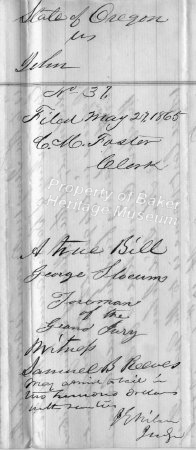 State of Oregon
vs
John
No. 37
Filed May 27, 1865
C. M. Foster
Clerk
Property of Baker
Heritage Museum
A true Bill
George Slocum
Foreman
of the
Grand Jury
Witness
Samuel B Reeves
May admit to bail in
two hundred Dollars
with sureties
Judge